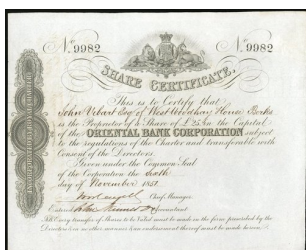 No. 9982 No. 9982
SHARE CERTIFICATE.
This is to Certify that
John Esq of West Woodhay House Berks
is the Proprietor of a Share of £25 in the Capital
of the ORIENTAL BANK CORPORATION subject
to the regulations of the Charter and transferable with
Consent of the Directors.
Given under the Common Seal
of the Corporation the Sixth
day of November 1851.
Chief Manager
Entered Accountant
NB. Every transfer of Shares to be Valid must be made in the form prescribed by the
Directors & no other, moreover an endorsement thereof must be made hereon.